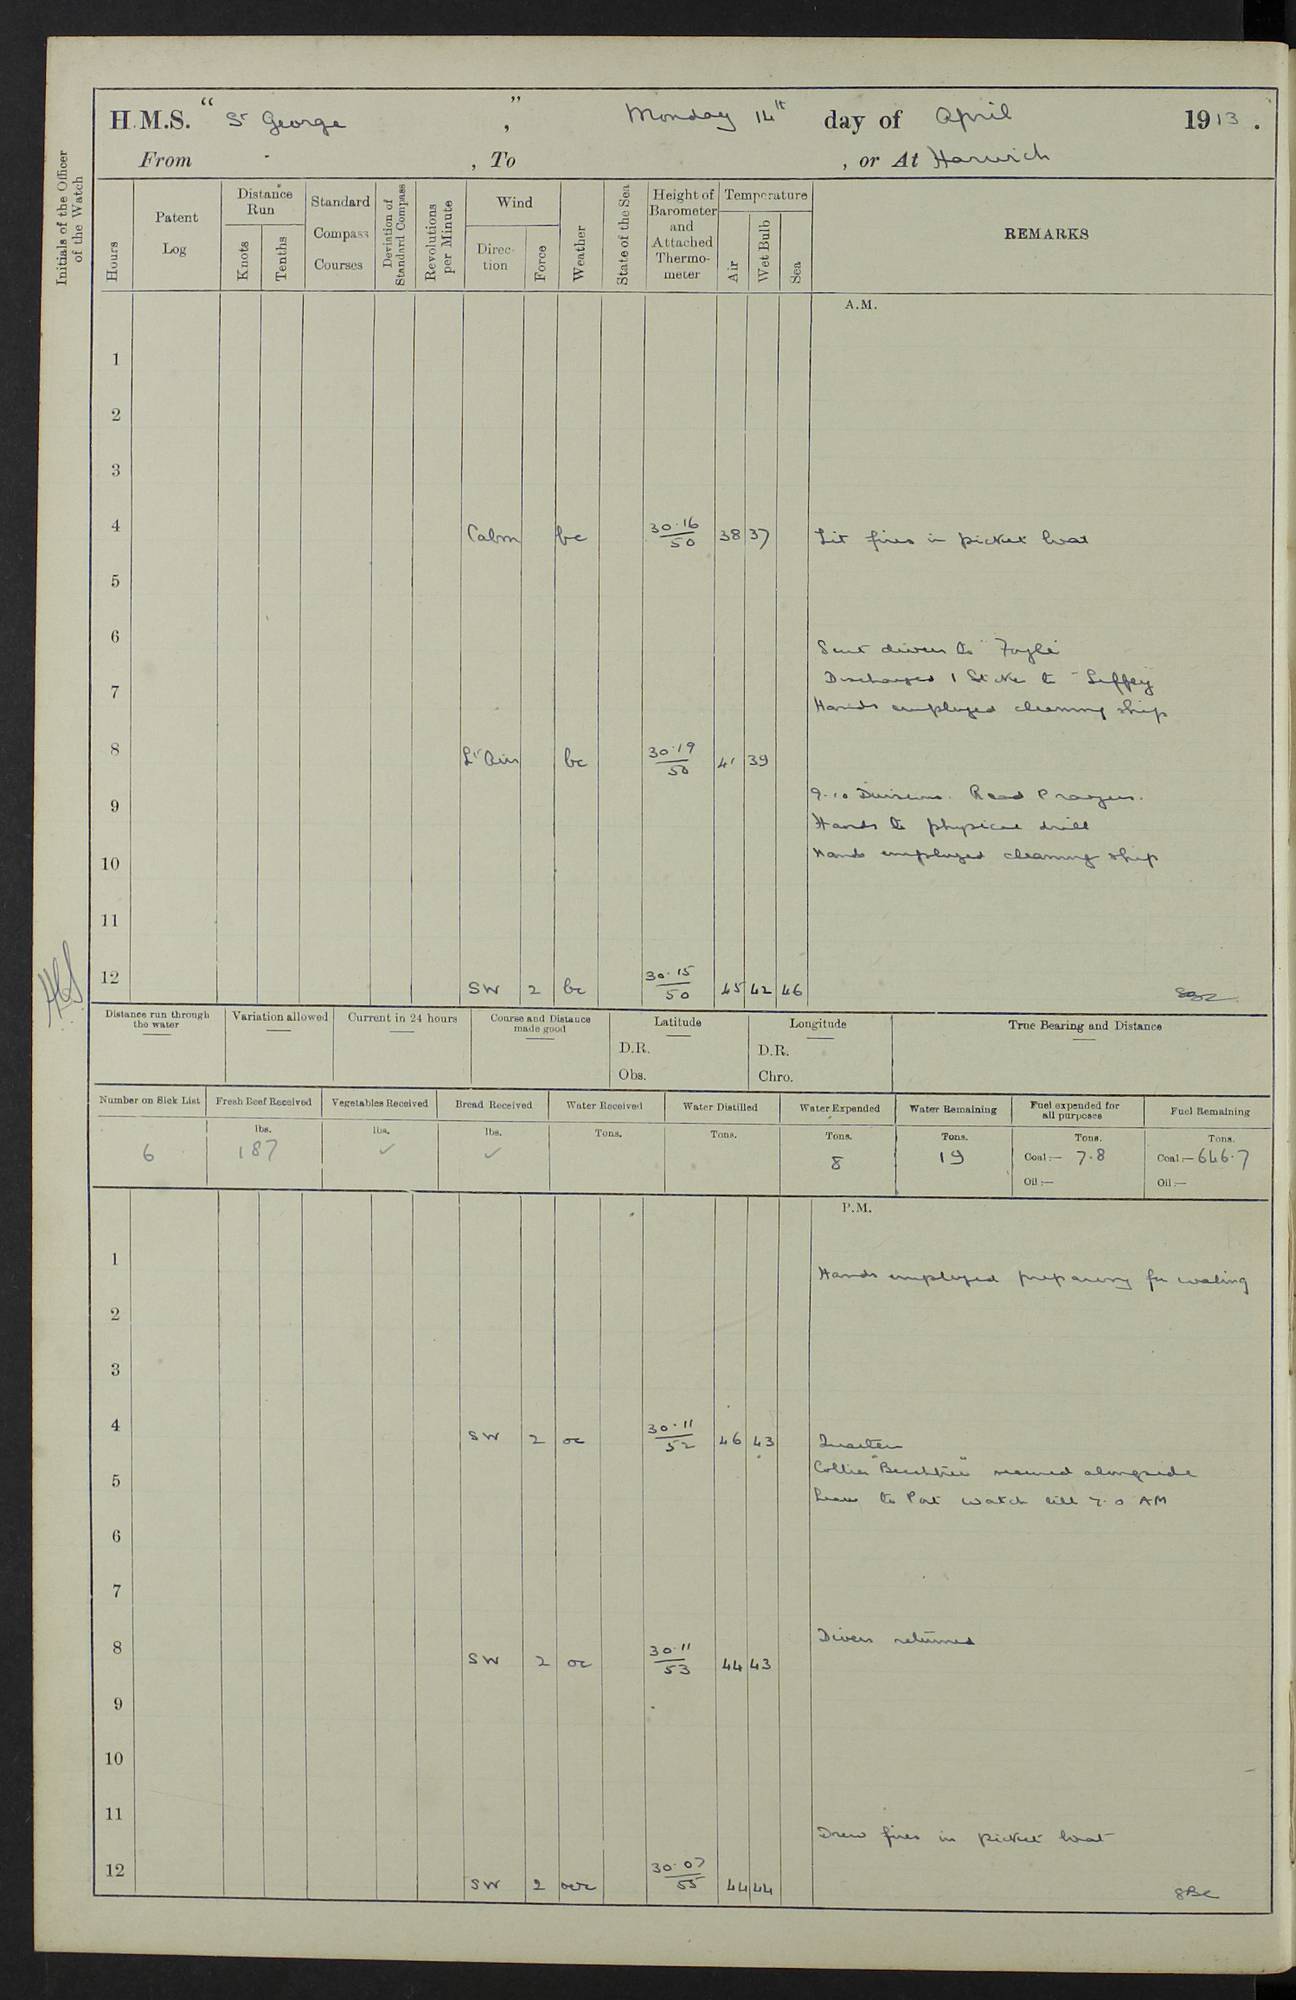 H.M.S. "St George", Monday 14th day of April 1913.
From - , To , or At Harwich
Initials of the Officer of the Watch
Hours
Patent Log
Distance Run
Knots
Tenths
Standard Compass Courses
Deviation of Standard Compass
Revolutions per Minute
Wind
Direction
Force
Weather
State of the Sea
Height of Barometer and Attached Thermometer
Temperature
Air
Wet Bulb
Sea
REMARKS
A.M.
1
2
3
4 Calm bc 30.16/50 38 37 Lit fires in picket boat
5
6
Sent divers to "Foyle"
Discharged 1 to "Liffey"
7
Hands employed cleaning ship
8 Lt Airs bc 30.19/50 41 39
9.10 Divisions. Read Prayers.
9
Hands to physical drill
Hands employed cleaning ship
10
11
12 SW 2 bc 30.15/50 45 42 46
Distance run through the water
Variation allowed
Current in 24 hours
Course and Distance made good
Latitude
D.R.
Obs.
Longitude
D.R.
Chro.
True Bearing and Distance
Number on Sick List
6
Fresh Beef Received
lbs.
187
Vegetables Received
lbs.
✓
Bread Received
lbs.
✓
Water Received
Tons.
Water Distilled
Tons.
Water Expended
Tons.
8
Water Remaining
Tons.
19
Fuel expended for all purposes
Tons.
Coal:— 7.8
Oil:—
Fuel Remaining
Tons.
Coal:— 646.7
Oil:—
P.M.
1
Hands employed preparing for coaling
2
3
4 SW 2 oc 30.11/52 46 43 Quarters
Collier "Beechtree" secured alongside
5
Leave to Port watch till 7.0 AM
6
7
Divers returned
8 SW 2 oc 30.11/53 44 43
9
10
11
Drew fires in picket boat
12 SW 2 ovc 30.07/55 44 44